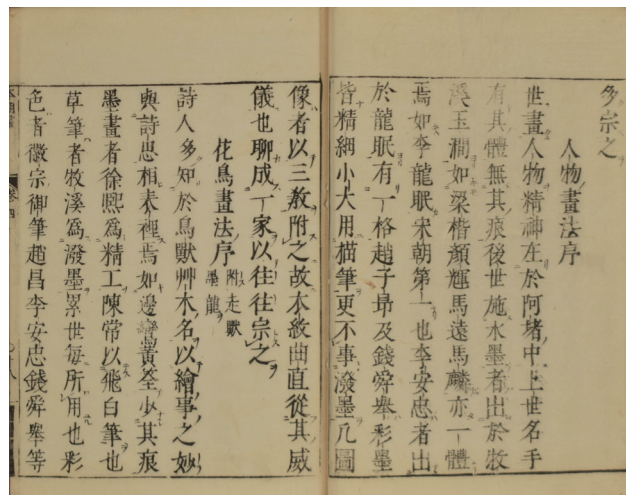 多宗之
人物畫法序
世畫人物精神在於阿堵中上世名手
有其體無其痕後世施水墨者出於牧
溪玉澗如梁楷顔輝馬遠馬麟亦一體
焉如李龍眠宋朝第一也李安忠者出
於龍眠有一格趙子昻及錢舜舉彩墨
皆精細小大用猫筆更不事潑墨凡圖
像者以三敎附之故衣紋曲直從其威
儀也聊成一家以往往宗之
花鳥畫法序 附走獸墨龍
詩人多知於鳥獸艸木名以繪事之妙
與詩思相表裡焉如邊鸞黃筌少其痕
墨畫者徐熙爲精工陳常以飛白筆也
草筆者牧溪爲潑墨累世每所用也彩
色者徽宗御筆趙昌李安忠錢舜舉等